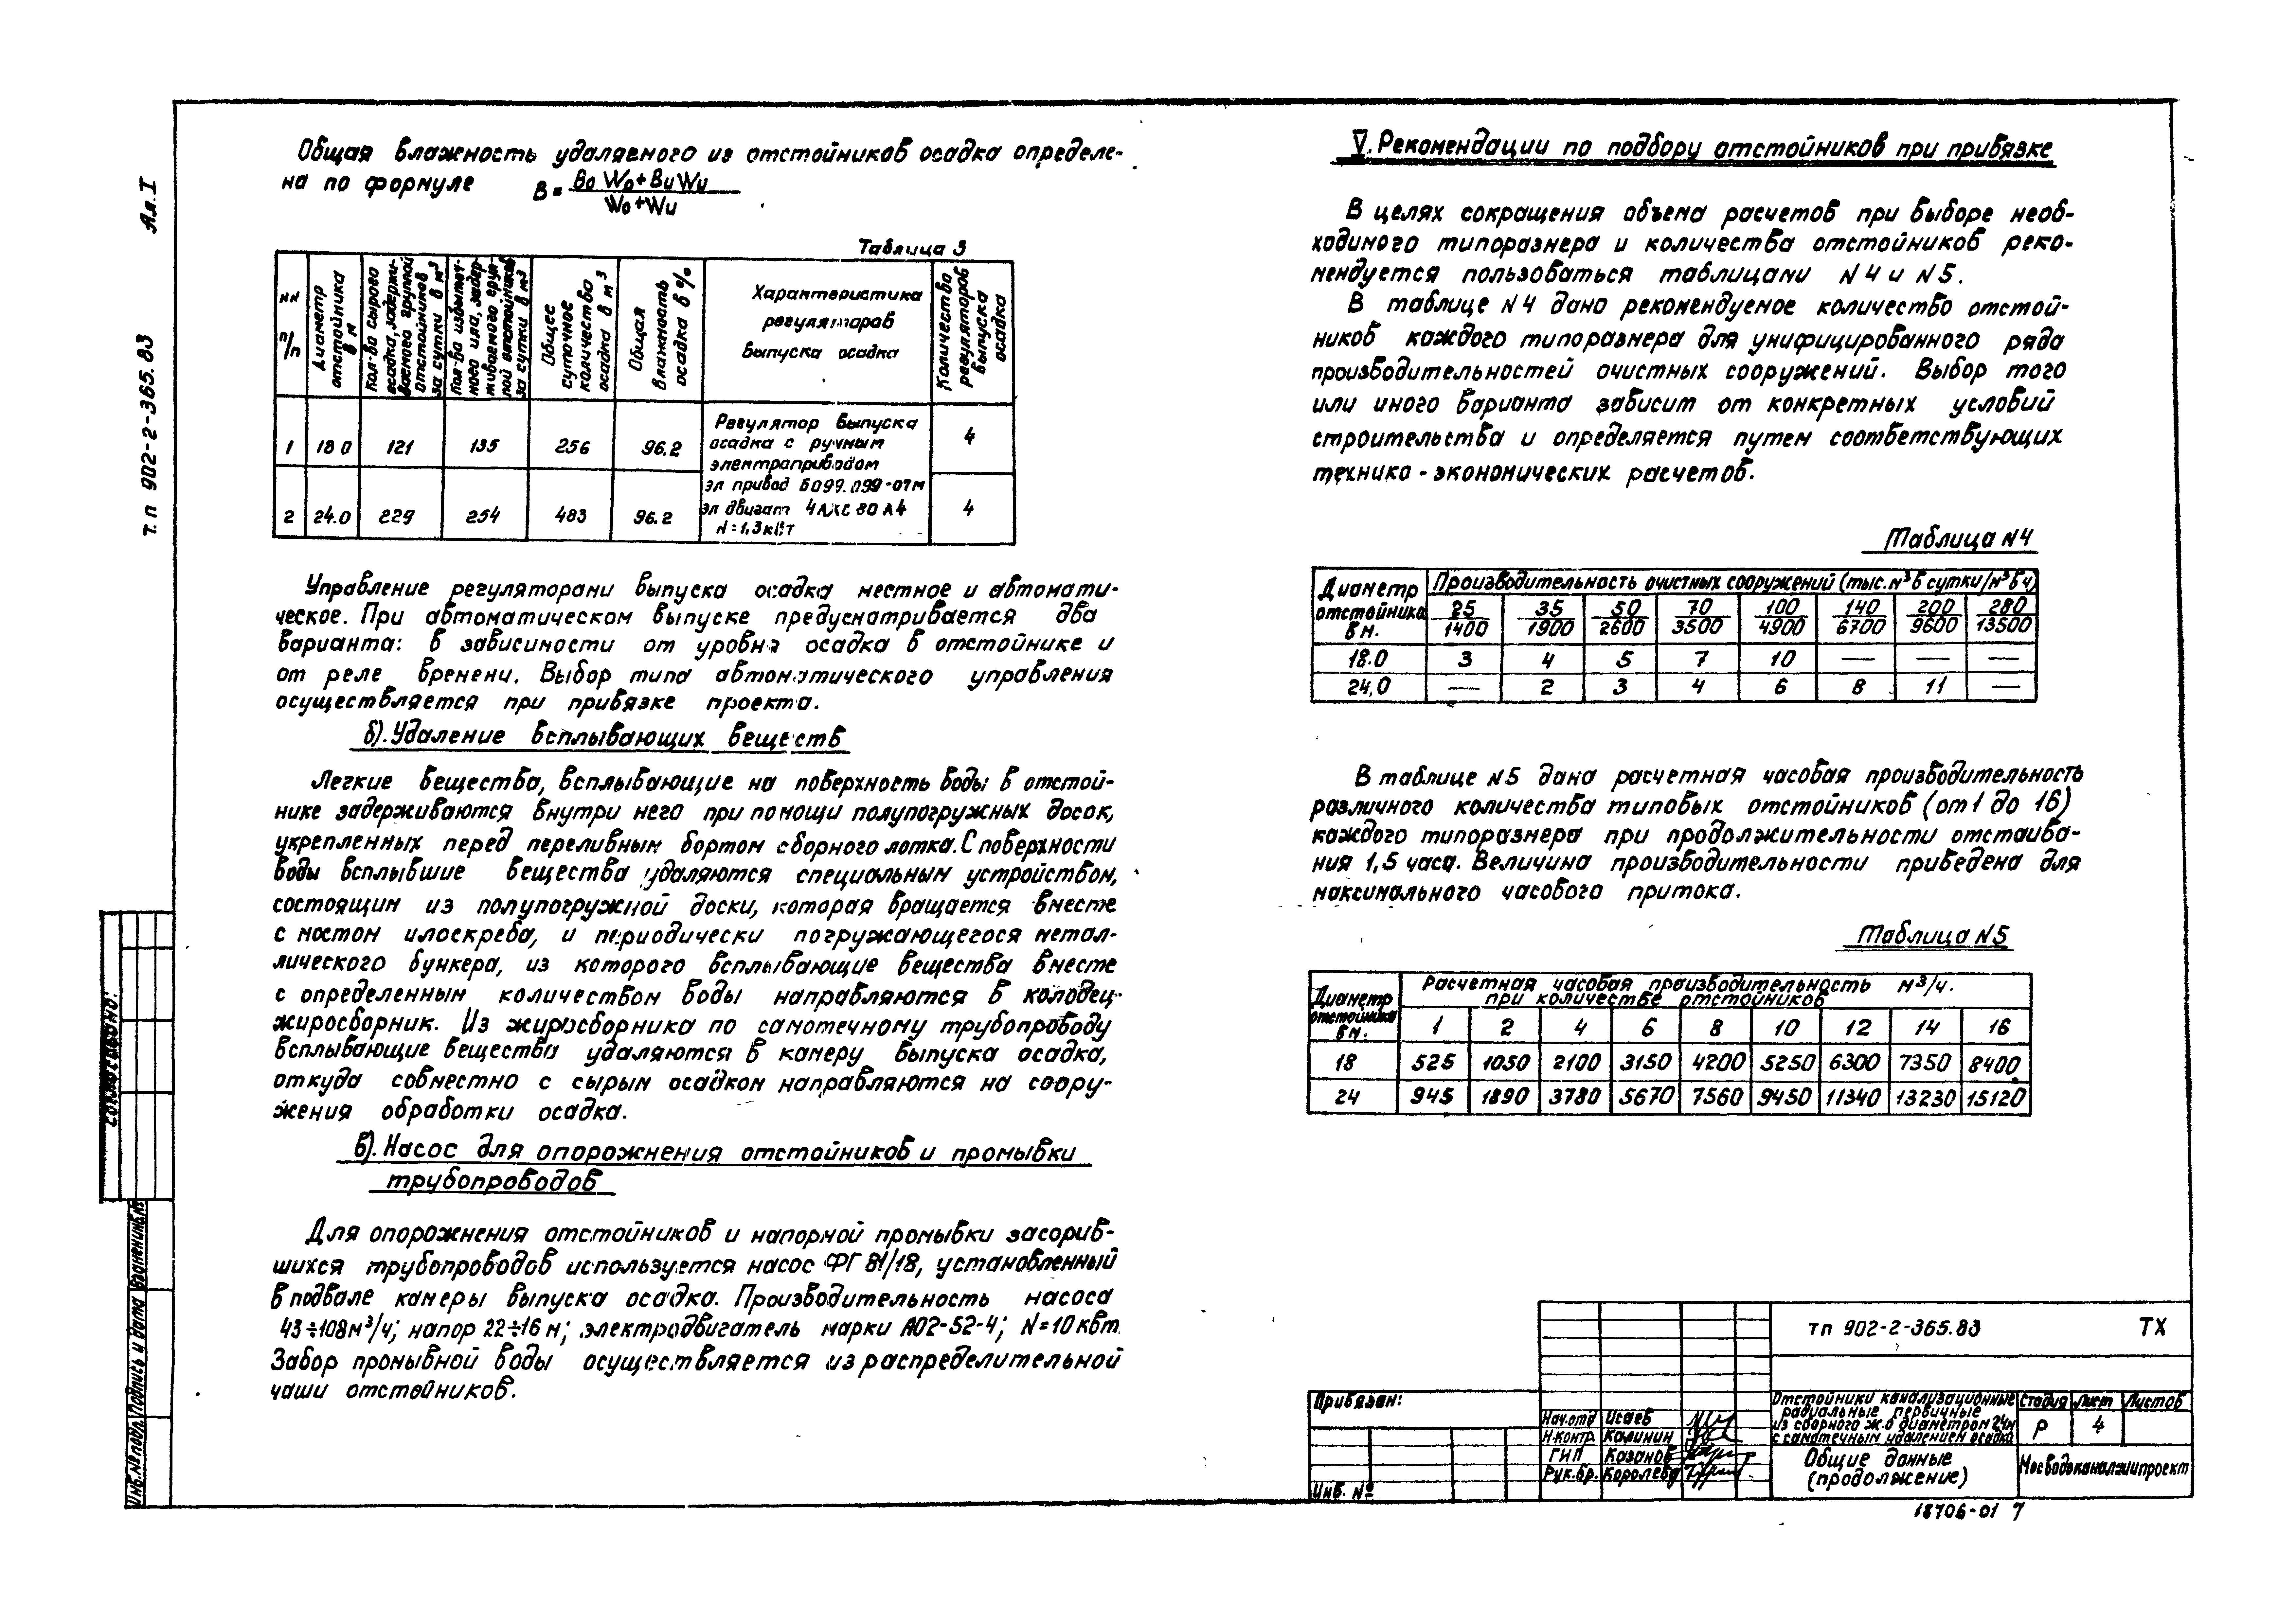 Ал. I
т.п 902-2-365.83
Общая влажность удаляемого из отстойников осадка определе-
на по формуле B = BoWo+BиWи / Wo+Wи
Таблица 3
NN п/п
Диаметр отстойника в м
Кол-во сырого осадка, задерживаемого группой отстойников за сутки в м3
Кол-во избыточного ила, задерживаемого группой отстойников за сутки в м3
Общее суточное количество осадка в м3
Общая влажность осадка в %
Характеристика регуляторов выпуска осадка
Количество регуляторов выпуска осадка
1 18.0 121 135 256 96.2 4
2 24.0 229 254 483 96.2 4
Регулятор выпуска
осадка с ручным
электроприводом
эл привод Б099.099-07м
эл двигат 4АХС 80 А4
N=1,3кВт
Управление регуляторами выпуска осадка местное и автомати-
ческое. При автоматическом выпуске предусматривается два
варианта: в зависимости от уровня осадка в отстойнике и
от реле времени. Выбор типа автоматического управления
осуществляется при привязке проекта.
б). Удаление всплывающих веществ
Легкие вещества, всплывающие на поверхность воды в отстой-
нике задерживаются внутри него при помощи полупогружных досок,
укрепленных перед переливным бортом сборного лотка. С поверхности
воды всплывшие вещества удаляются специальным устройством,
состоящим из полупогружной доски, которая вращается вместе
с мостом илоскреба, и периодически погружающегося метал-
лического бункера, из которого всплывающие вещества вместе
с определенным количеством воды направляются в колодец-
жиросборник. Из жиросборника по самотечному трубопроводу
всплывающие вещества удаляются в камеру выпуска осадка,
откуда совместно с сырым осадком направляются на соору-
жения обработки осадка.
в). Насос для опорожнения отстойников и промывки
трубопроводов
Для опорожнения отстойников и напорной промывки засорив-
шихся трубопроводов используется насос ФГ 81/18, установленный
в подвале камеры выпуска осадка. Производительность насоса
43÷108м³/ч; напор 22÷16 м; электродвигатель марки АО2-52-4; N=10квт.
Забор промывной воды осуществляется из распределительной
чаши отстойников.
V. Рекомендации по подбору отстойников при привязке
В целях сокращения объема расчетов при выборе необ-
ходимого типоразмера и количества отстойников реко-
мендуется пользоваться таблицами N4 и N5.
В таблице N4 дано рекомендуемое количество отстой-
ников каждого типоразмера для унифицированного ряда
производительностей очистных сооружений. Выбор того
или иного варианта зависит от конкретных условий
строительства и определяется путем соответствующих
технико-экономических расчетов.
Таблица N4
Диаметр отстойника в м. Производительность очистных сооружений (тыс.м³ в сутки/м³ в ч)
25/1400 35/1900 50/2600 70/3500 100/4900 140/6700 200/9600 280/13500
18.0 3 4 5 7 10 — — —
24,0 — 2 3 4 6 8 11 —
В таблице N5 дана расчетная часовая производительность
различного количества типовых отстойников (от 1 до 16)
каждого типоразмера при продолжительности отстаива-
ния 1,5 часа. Величина производительности приведена для
максимального часового притока.
Таблица N5
Диаметр отстойника в м. Расчетная часовая производительность м³/ч.
при количестве отстойников
1 2 4 6 8 10 12 14 16
18 525 1050 2100 3150 4200 5250 6300 7350 8400
24 945 1890 3780 5670 7560 9450 11340 13230 15120
Согласовано:
Взамен инв.№
Подпись и дата
Инв.№ подл.
Привязан:
Инв. №
Нач.отд Исаев
Н.контр. Калинин
ГИП Казанов
Рук.бр. Королева
тп 902-2-365.83 ТХ
Отстойники канализационные
радиальные первичные
из сборного ж.б диаметром 24м
с самотечным удалением осадка
Стадия Лист Листов
Р 4
Общие данные
(продолжение)
Мосводоканалниипроект
18706-01 7